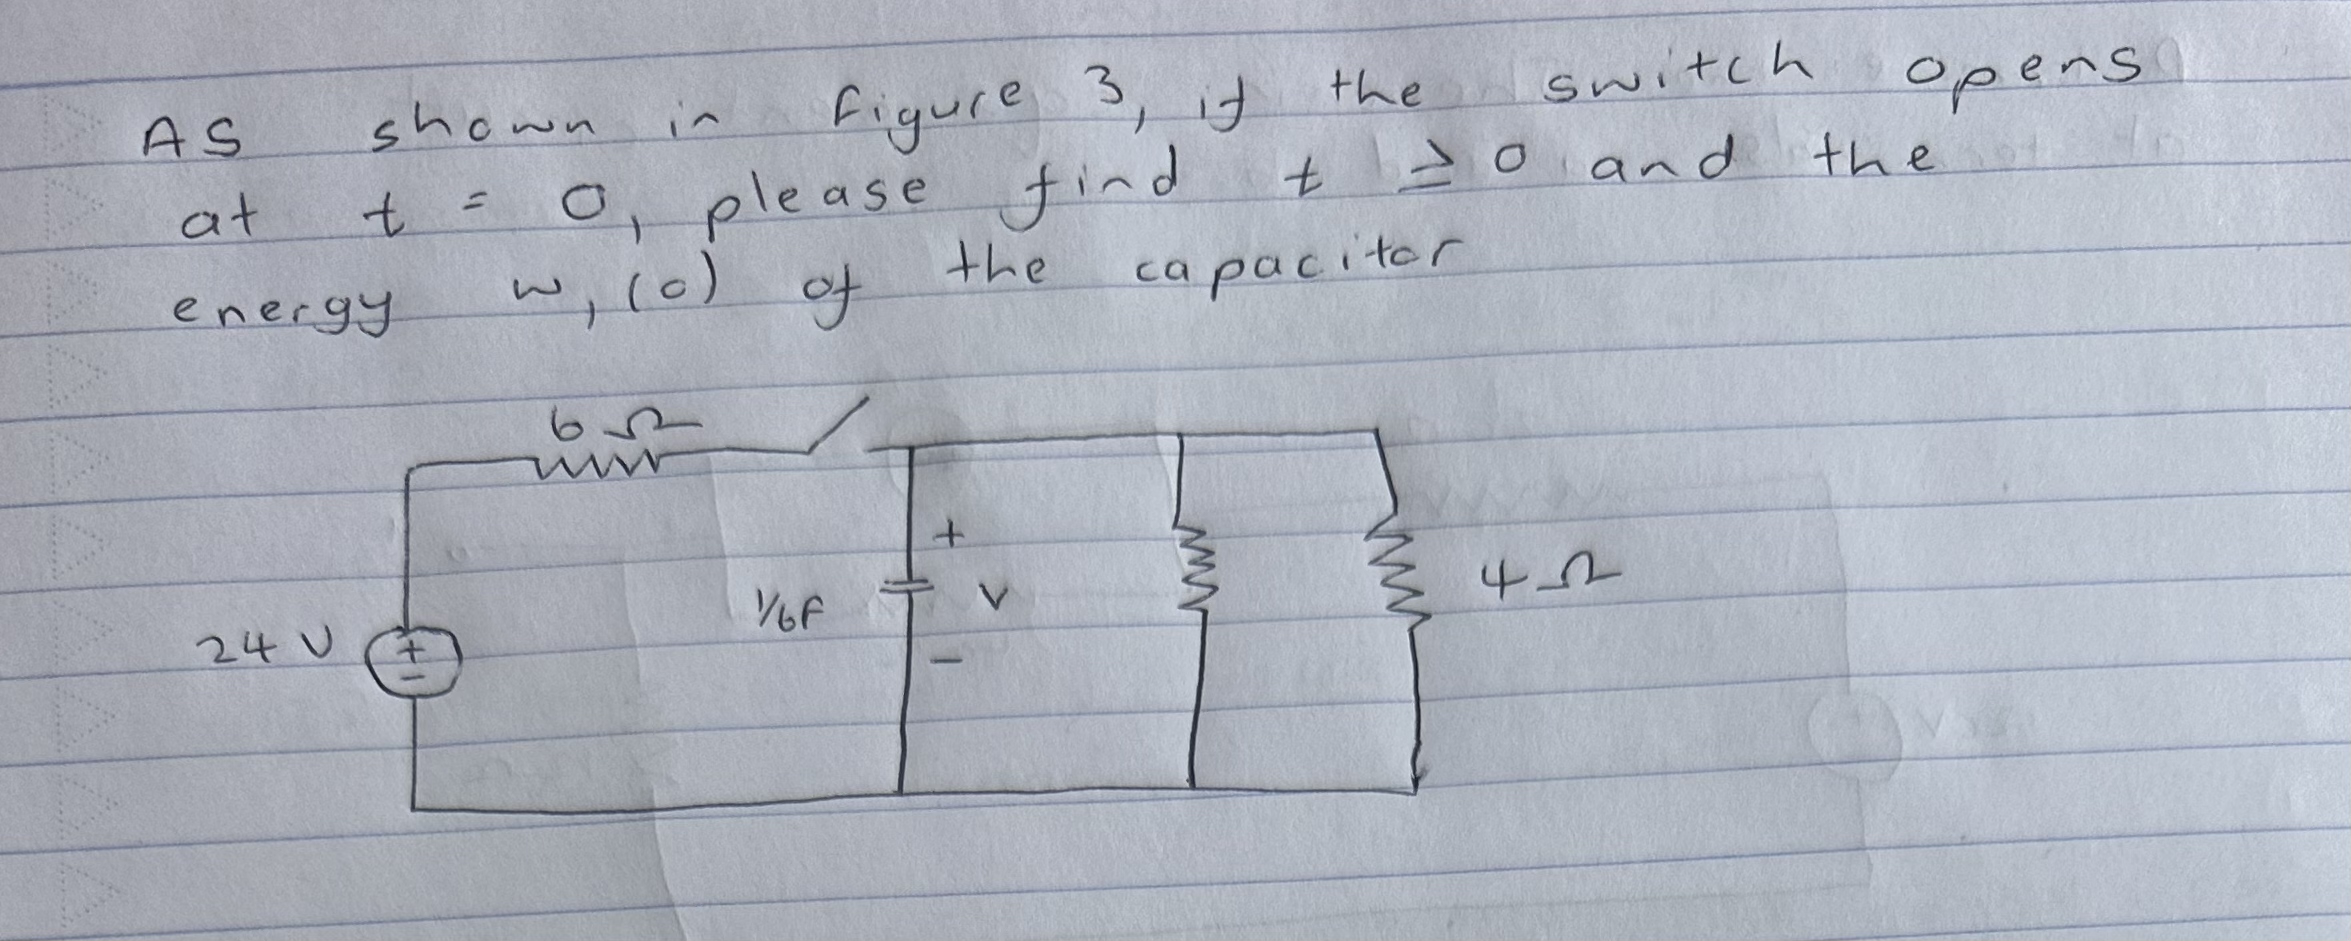 As shown in figure 3, if the switch opens
at t = 0, please find t ≥ 0 and the
energy w, (0) of the capacitor
6 Ω
+
1/6F
V
4 Ω
24 V
+
-
-